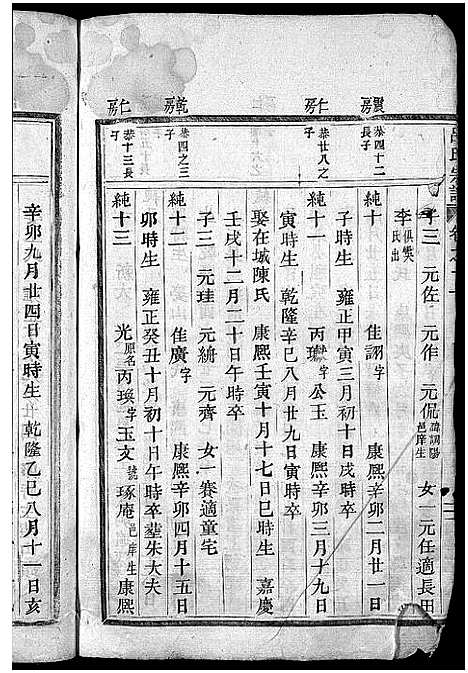 氏宗譜
子三 元佐 元作 元侃 諱調陽邑庠生 女一元任適長田
李氏出
震房
恭四十二長子
純十 佳詡字 康熙辛卯二月廿一日
子時生 雍正甲寅三月初十日戌時卒
仁房
恭廿八之子
純十一 丙 字公玉 康熙辛卯三月十九日
寅時生 乾隆辛巳八月廿九日寅時卒
娶在城陳氏 康熙壬寅十月十七日巳時生 嘉慶
壬戌十二月二十日午時卒
子三 元珪 元綺 元齊 女一賽適童宅
乾房
恭四之三子
純十二 佳廣字 康熙辛卯四月十五日
卯時生 雍正癸丑十月初十日午時卒塟朱大夫
仁房
恭十三長子
純十三 光原名丙瑛字玉文號琢庵邑庠生康熙
辛卯九月廿四日寅時生 卒乾隆乙巳八月十一日亥